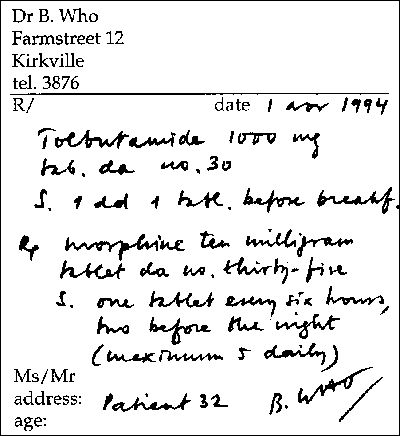 Dr B. Who
Farmstreet 12
Kirkville
tel. 3876
R/ date 1 apr 1994
Tolbutamide 1000 mg
tab. da no. 30
S. 1 dd 1 tabl. before breakf.
Rp morphine ten milligram
tablet da no. thirty-five
S. one tablet every six hours,
two before the night
(maximum 5 daily)
Ms/Mr
address: Patient 32 B. WHO
age: